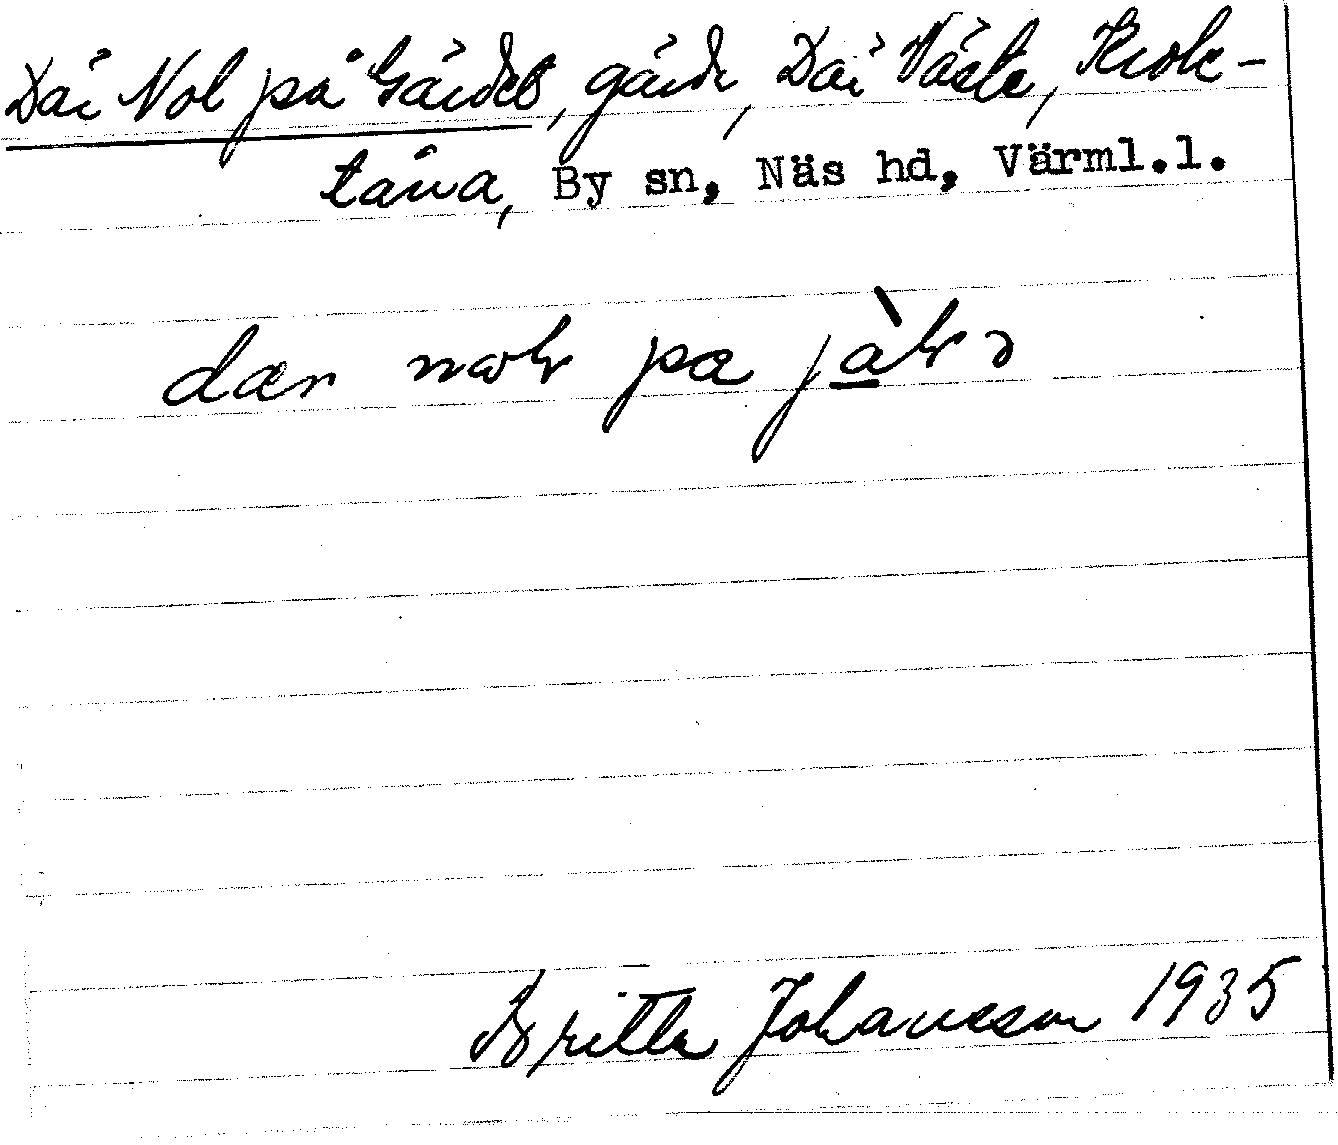 Där Nol på Gärdet, gård, Där Väste, Krok-
tärna, By sn, Näs hd, Värml.l.
dær nɷɫ pa jàɫə
Britta Johansson 1935